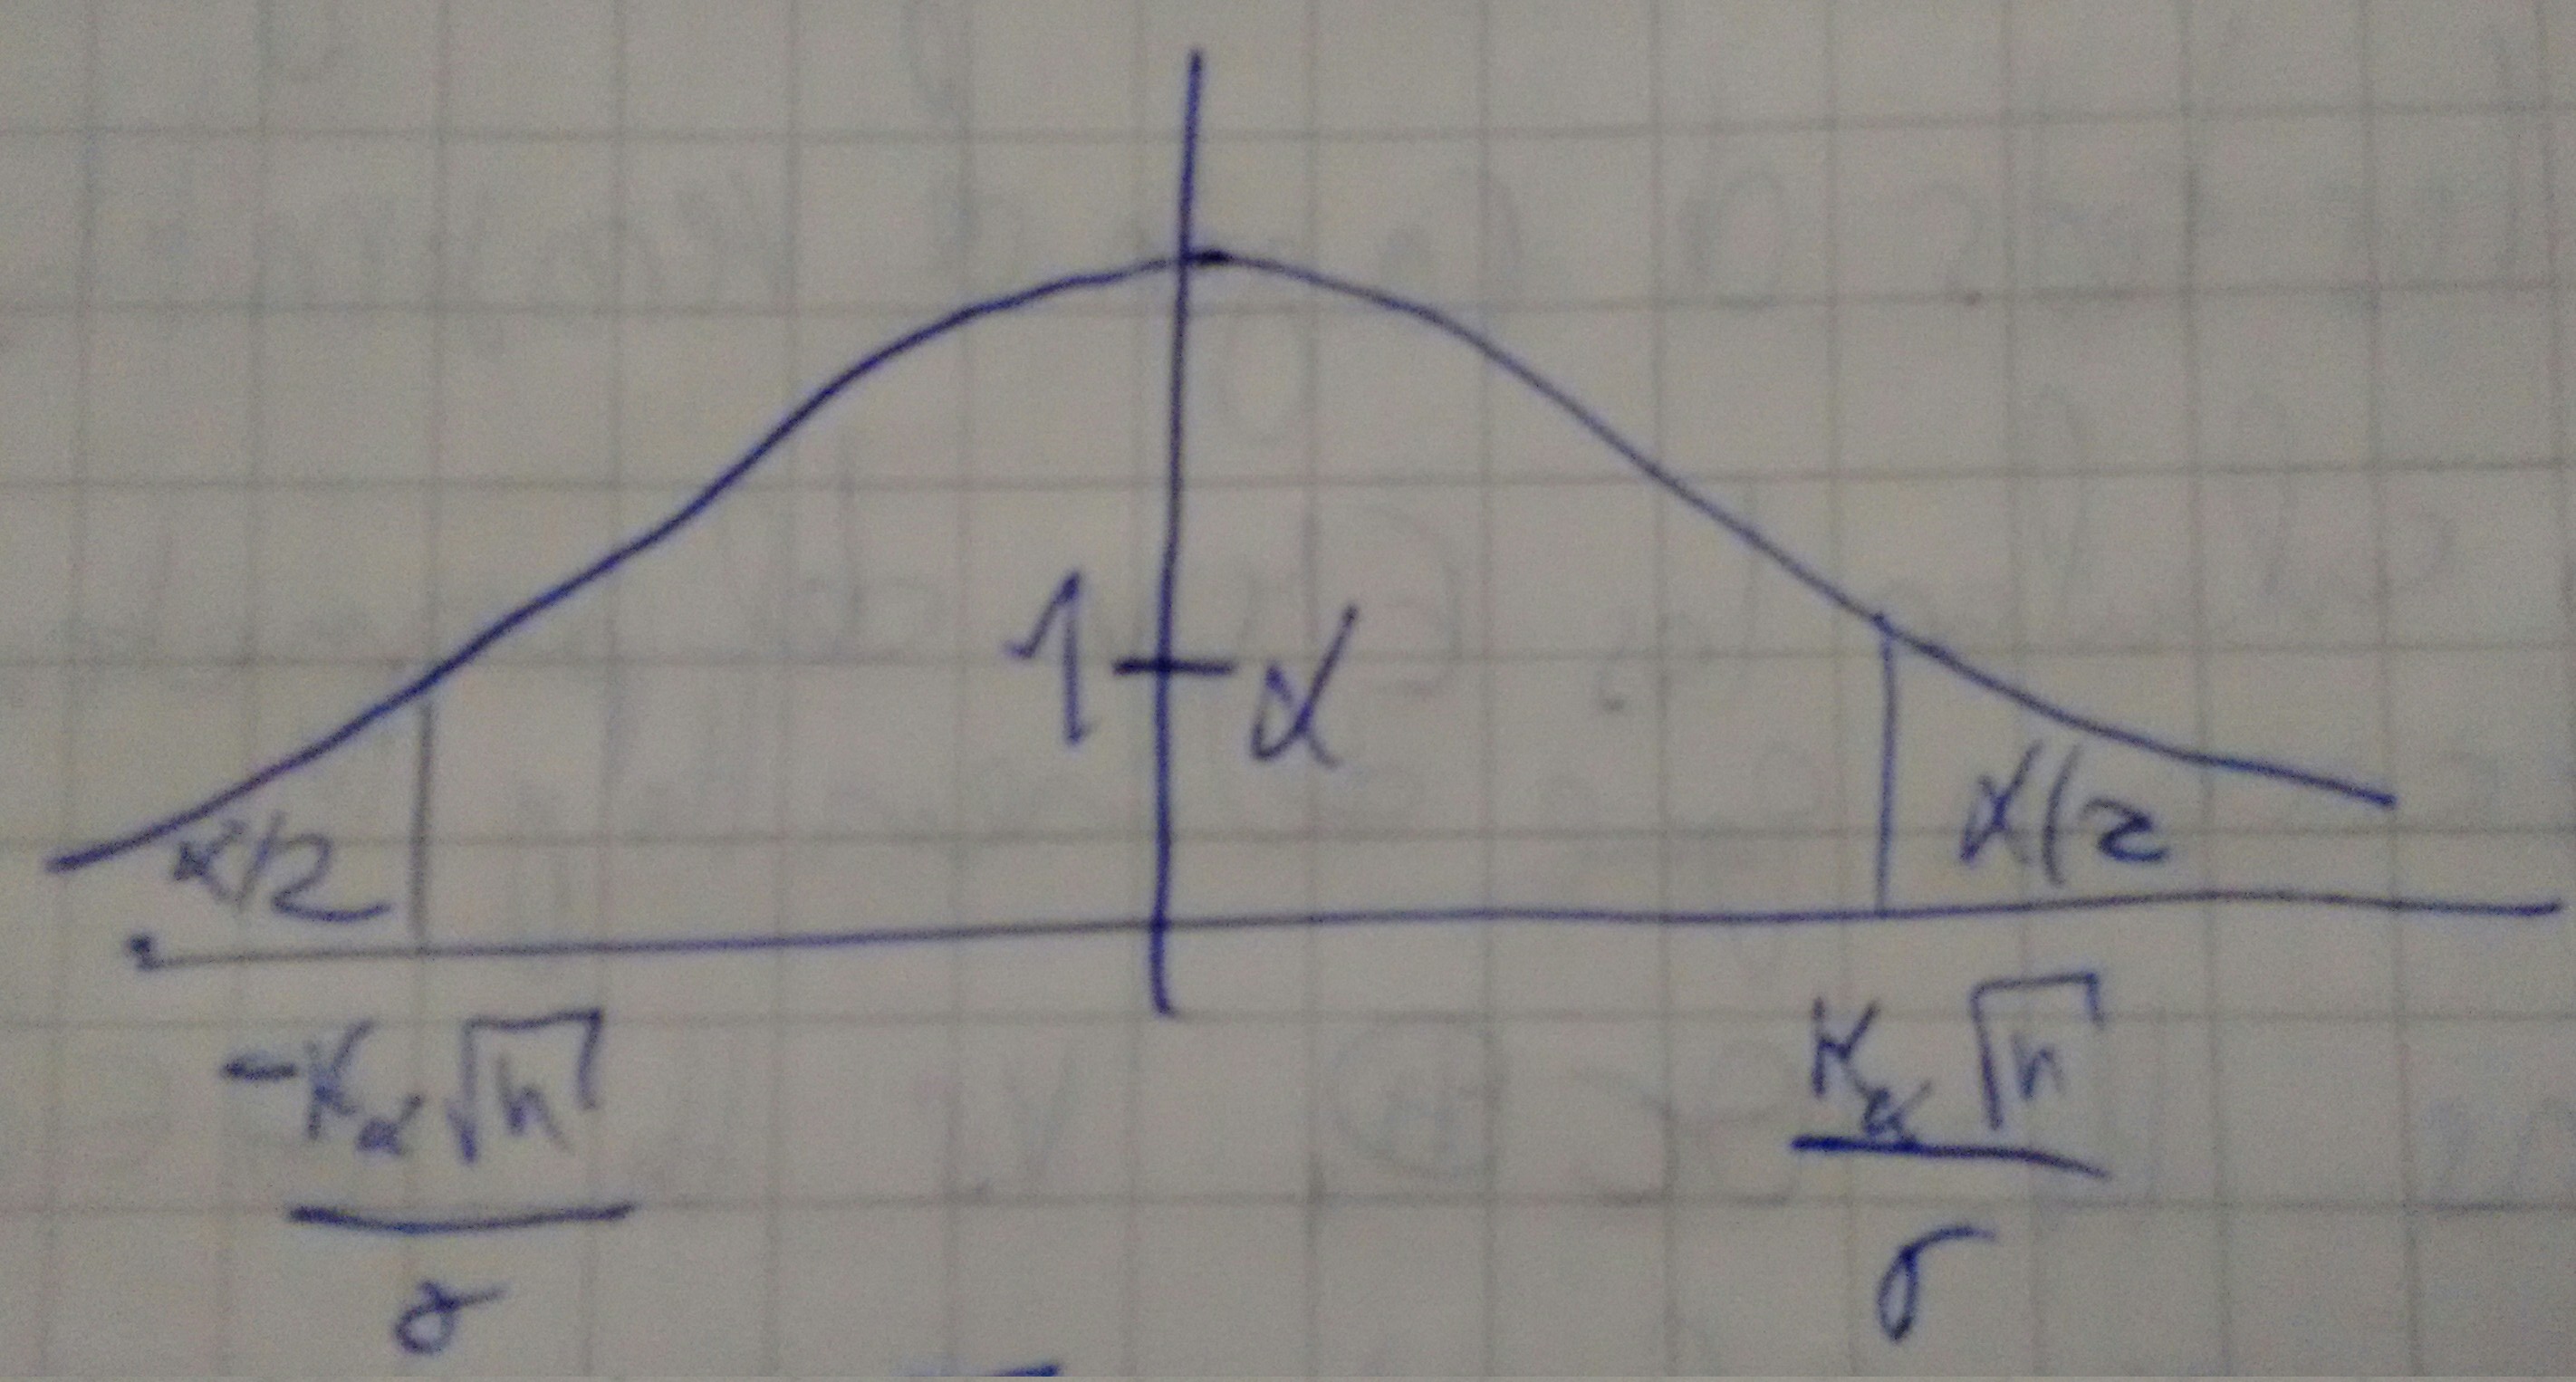 1 - α
α/2 α/2
-Kα √n Kα √n
σ σ